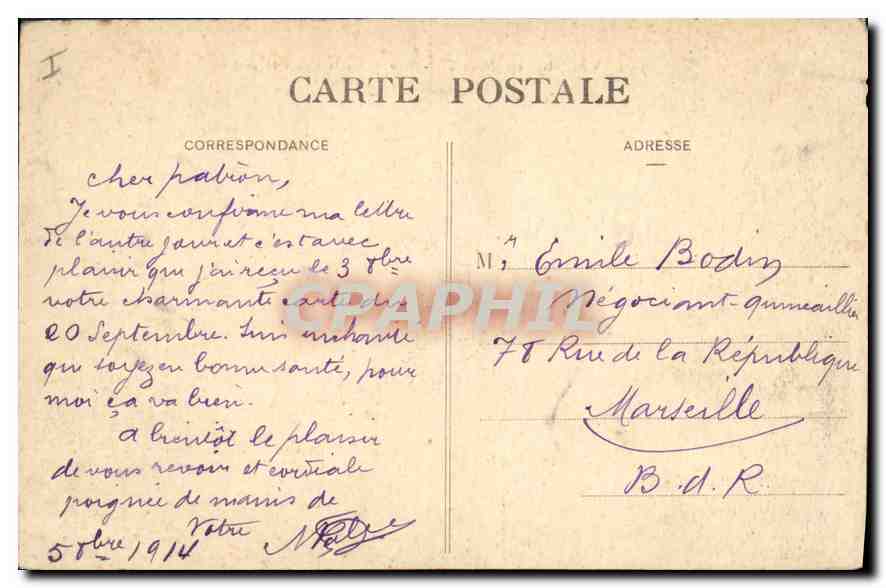 I
CARTE POSTALE
CORRESPONDANCE
cher patron,
Je vous confirme ma lettre
de l'autre jour et c'est avec
plaisir que j'ai reçu le 3 8bre
votre charmante carte du
20 Septembre. Suis enchanté
que soyez en bonne santé, pour
moi ça va bien.
A bientôt le plaisir
de vous revoir et cordiale
poignée de mains de
Votre
5 8bre 1914
ADRESSE
Mr Emile Bodin
Négociant-quincaillier
78 Rue de la République
Marseille
B.d.R
CPAPHIL